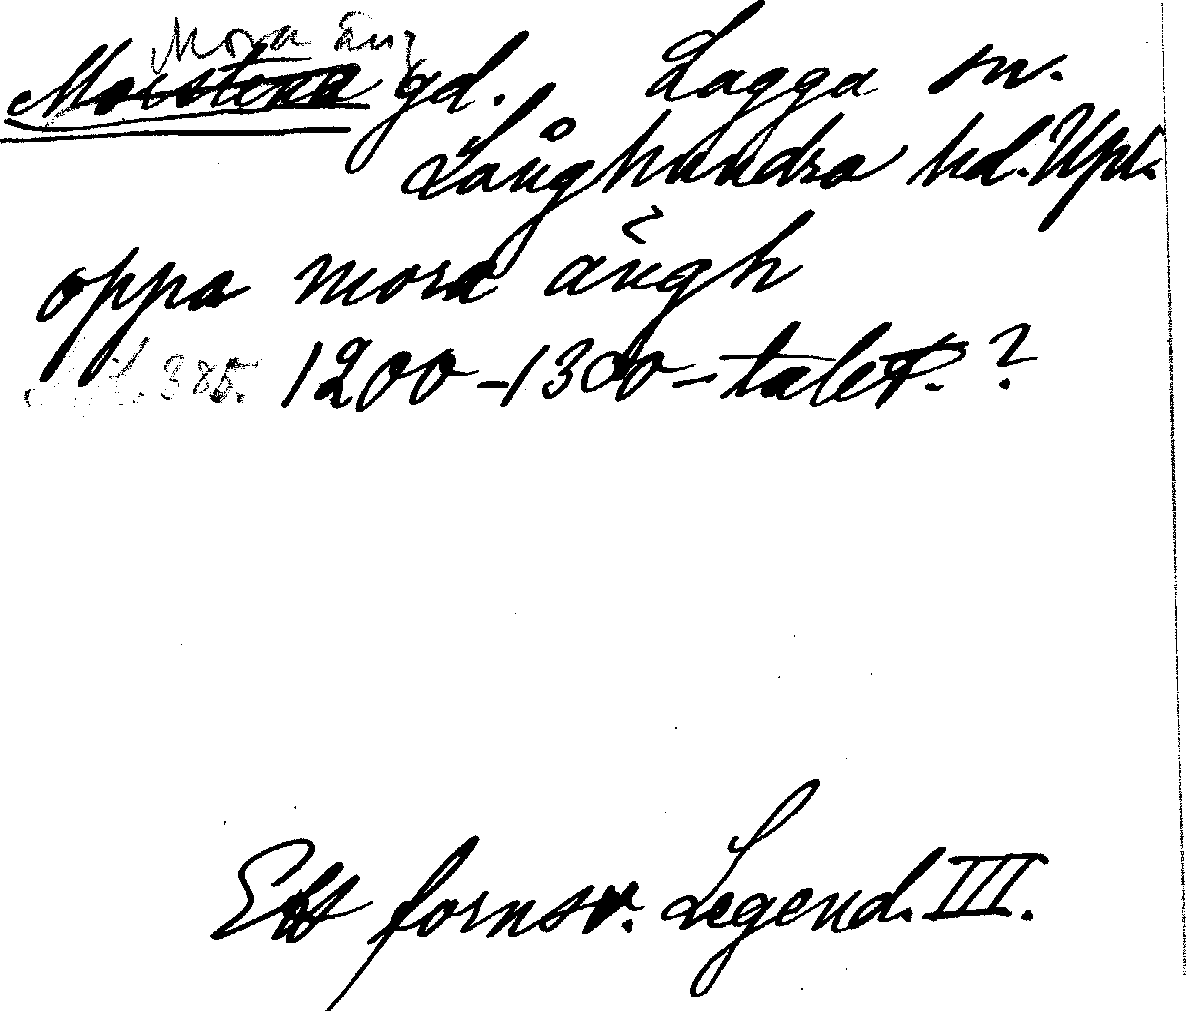 Mora äng
Mostena gd. Lagga sn.
Långhundra hd. Upl.
oppa mora ängh
s. 385. 1200-1300-talet. ?
Ett fornsv. Legend. III.